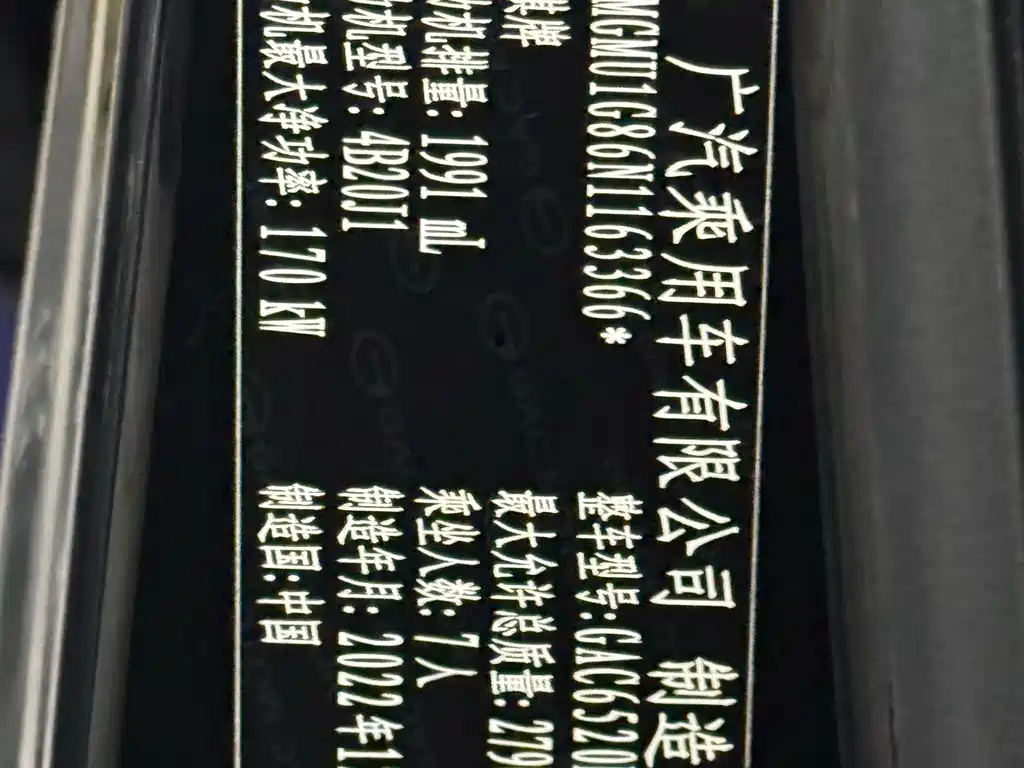 广汽乘用车有限公司 制造
MGMU1G86N116336​6* 整车型号:GAC6520
牌 最大允许总质量:279
机排量: 1991 mL 乘坐人数: 7人
机型号: 4B20J1 制造年月: 2022年1
机最大净功率: 170 kW 制造国:中国